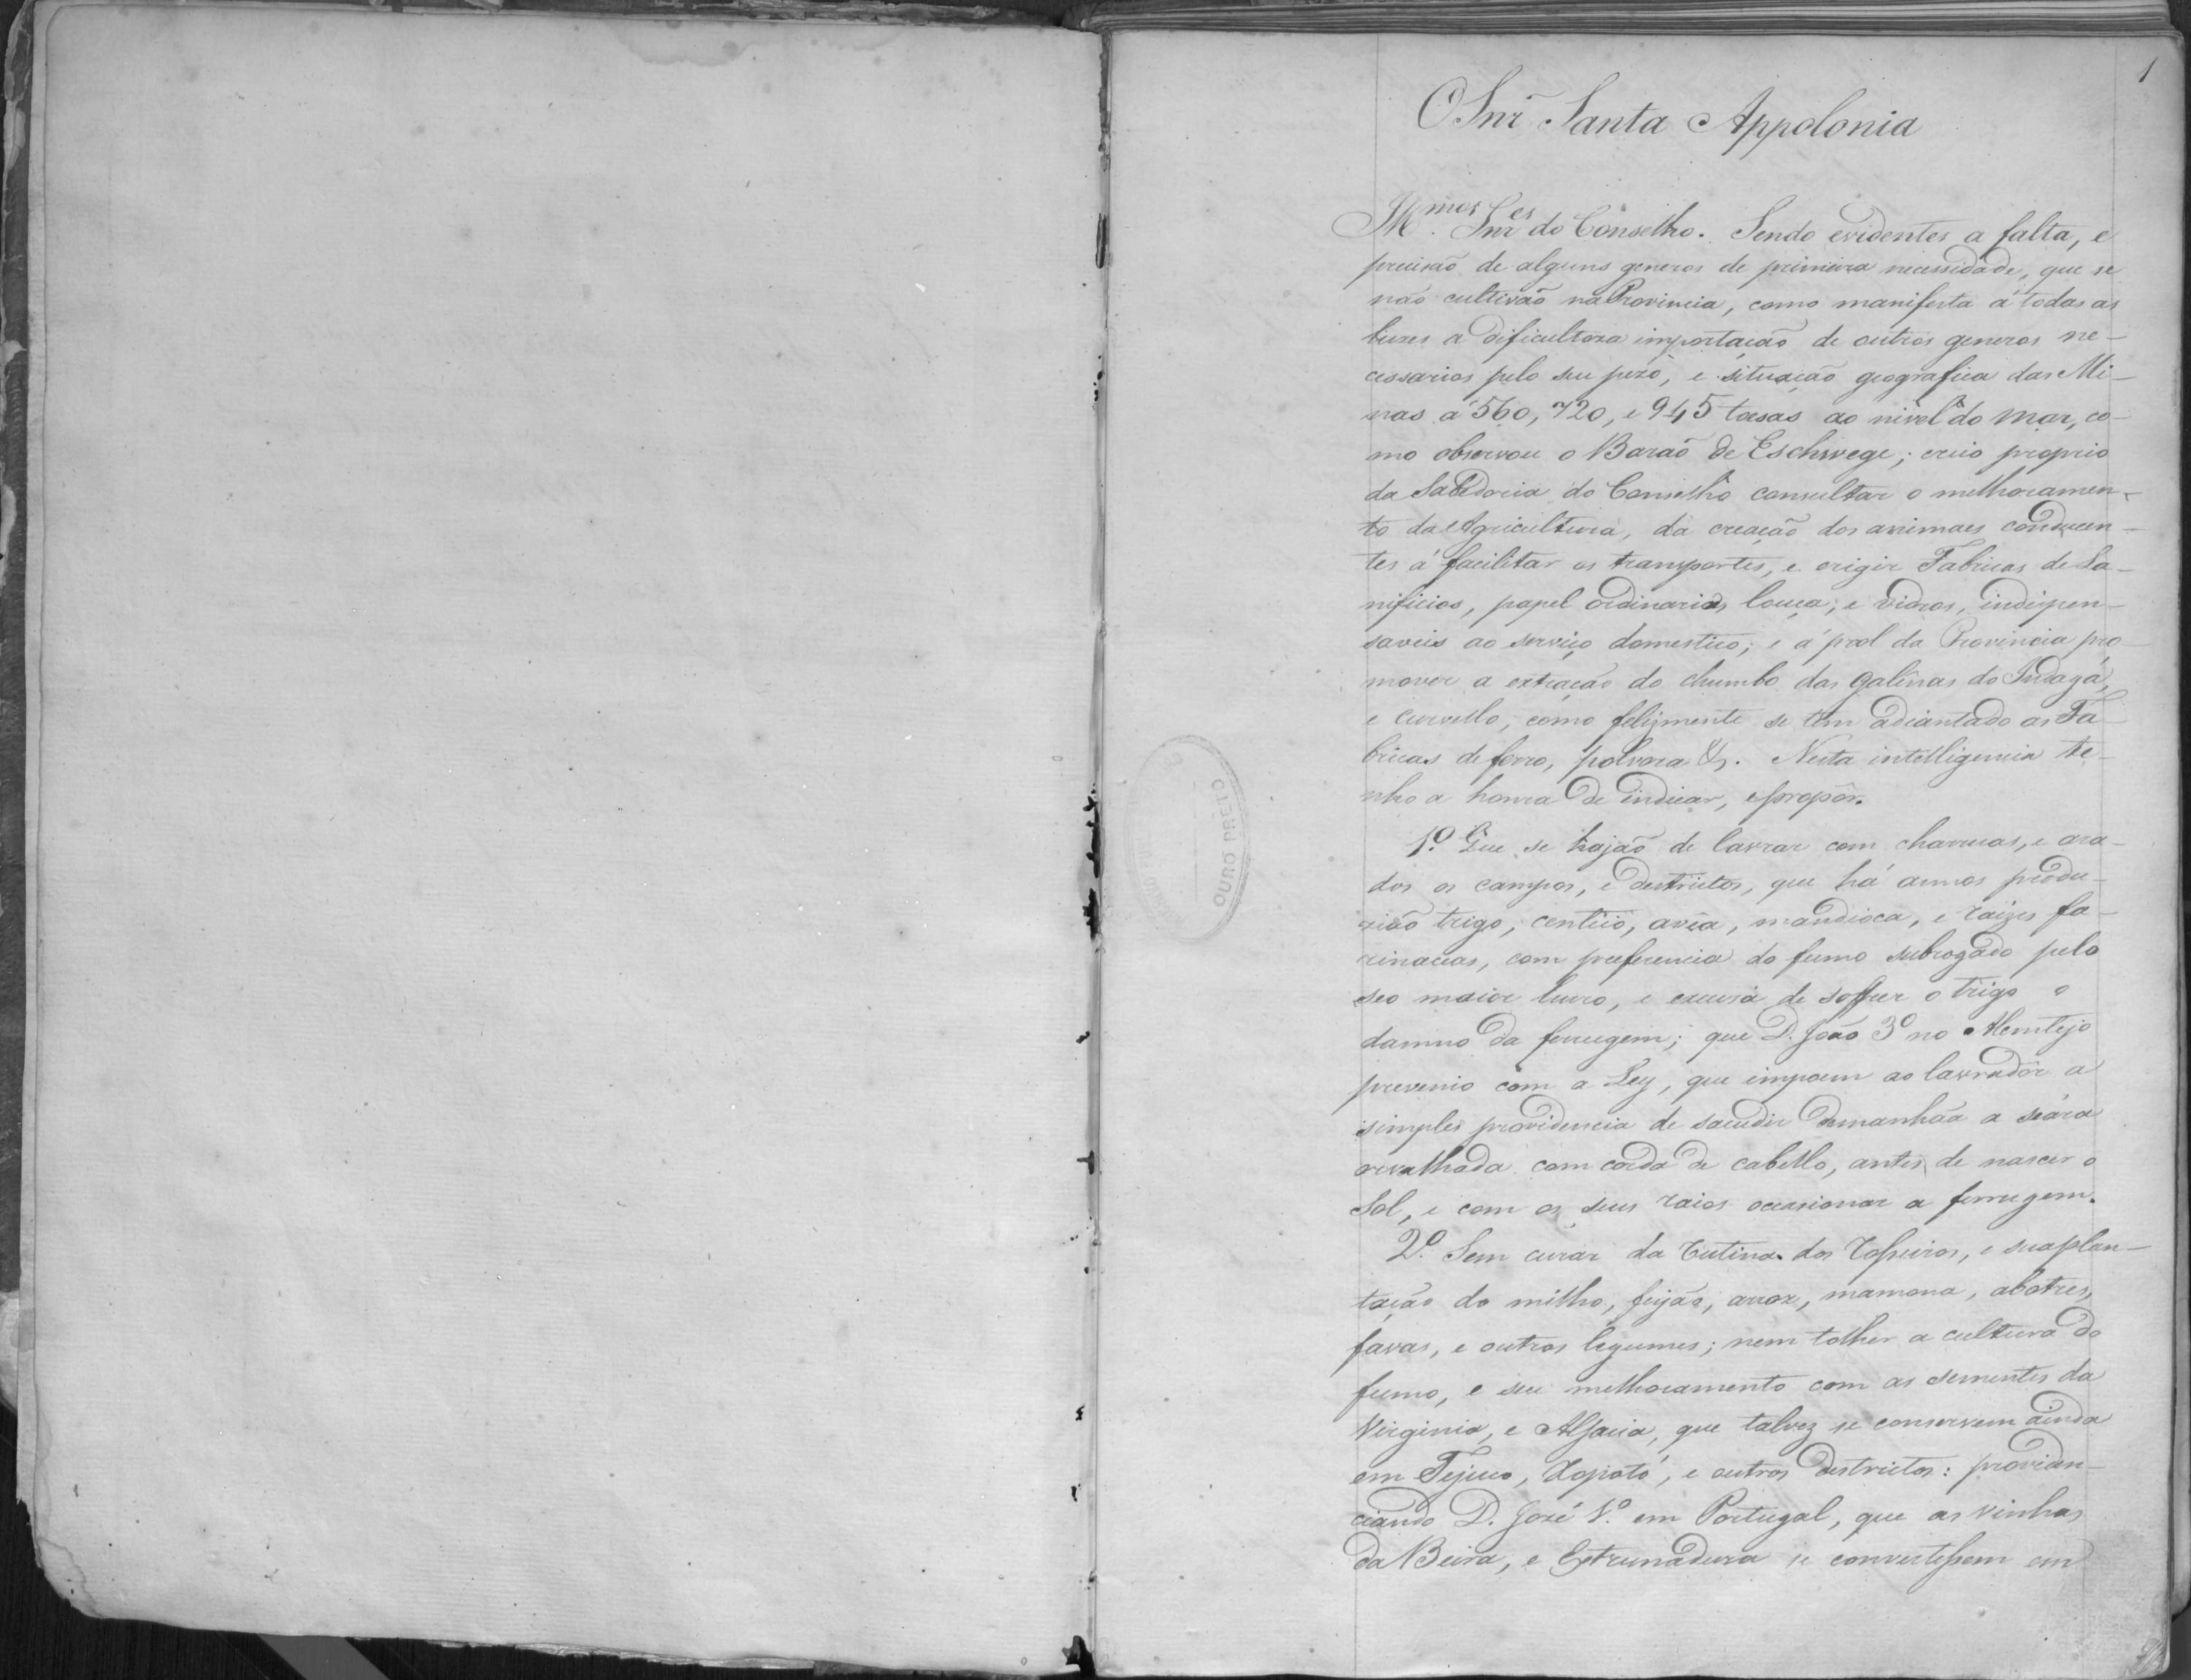 1
O Snr. Santa Appolonia
Ill.mos Snr.es do Conselho. Sendo evidentes a falta, e
precisão de alguns generos de primeira necessidade, que se
não cultivão na Provincia, como manifesta á todas as
luzes a dificultoza importação de outros generos ne-
cessarios pelo seu pezo, e situação geografica das Mi-
nas a 560, 720, e 945 toesas ao nivel do mar, co-
mo observou o Barão de Eschwege; creio proprio
da Sabedoria do Conselho consultar o melhoramen-
to da Agricultura, da creação dos animaes conducen-
tes á facilitar os transportes, e erigir Fabricas de La-
nificios, papel ordinario, louça, e vidros, indispen-
saveis ao serviço domestico; e á prol da Provincia pro-
mover a extração do chumbo das galênas do Indayá,
e Curvello, como felizmente se tem adiantado as Fa-
bricas de ferro, polvora &. Nesta intelligencia te-
nho a honra de indicar, e propôr.
1.º Que se hajão de lavrar com charruas, e ara-
dos os campos, e destrictos, que há annos produ-
zião trigo, centeio, avêa, mandioca, e raizes fa-
rinaceas, com preferencia do fumo subrogado pelo
seo maior lucro, e escusa de soffrer o trigo o
damno da ferrugem; que D. João 3º no Alemtejo
prevenio com a Ley, que impoem ao lavradôr a
simples providencia de sacudir demanhãa a seára
orvalhada com corda de cabello, antes de nascer o
Sol, e com os seus raios occasionar a ferrugem.
2.º Sem curar da rutina dos roceiros, e sua plan-
tação do milho, feijão, arroz, mamona,
favas, e outros legumes; nem tolher a cultura do
fumo, e seu melhoramento com as sementes da
Virginia, e Alsacia, que talvez se conservem ainda
em Tejuco, Xopotó, e outros destrictos: providen-
ciando D. José 1.º em Portugal, que as vinhas
da Beira, e Extremadura se convertessem em
OURO PRETO